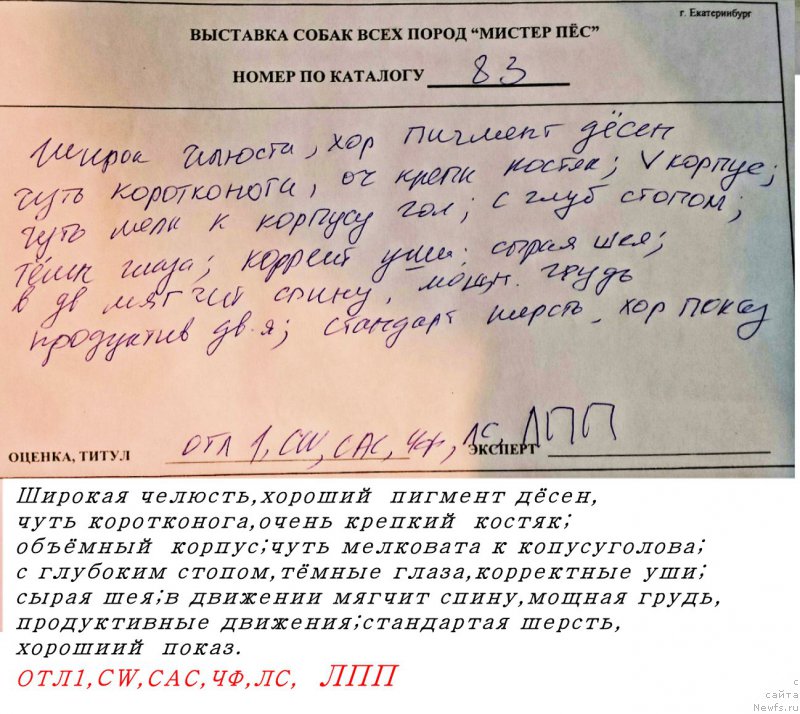 г. Екатеринбург
ВЫСТАВКА СОБАК ВСЕХ ПОРОД “МИСТЕР ПЁС”
НОМЕР ПО КАТАЛОГУ 83
широк челюсти, хор пигмент дёсен
чуть коротконоги, оч крепк костяк; V корпус;
чуть мелк к корпусу гол; с глуб стопом;
тёмн глаза; коррект уши; сырая шея;
в дв мягчит спину, мощн. грудь
продуктив дв-я; стандарт шерсть, хор показ
ОЦЕНКА, ТИТУЛ отл 1, CW, CAC, ЧФ, ЛС, ЛПП ЭКСПЕРТ
Широкая челюсть,хороший пигмент дёсен,
чуть коротконога,очень крепкий костяк;
объёмный корпус;чуть мелковата к копусуголова;
с глубоким стопом,тёмные глаза,корректные уши;
сырая шея;в движении мягчит спину,мощная грудь,
продуктивные движения;стандартая шерсть,
хорошиий показ.
ОТЛ1,CW,CAC,ЧФ,ЛС, ЛПП
с
сайта
Newfs.ru